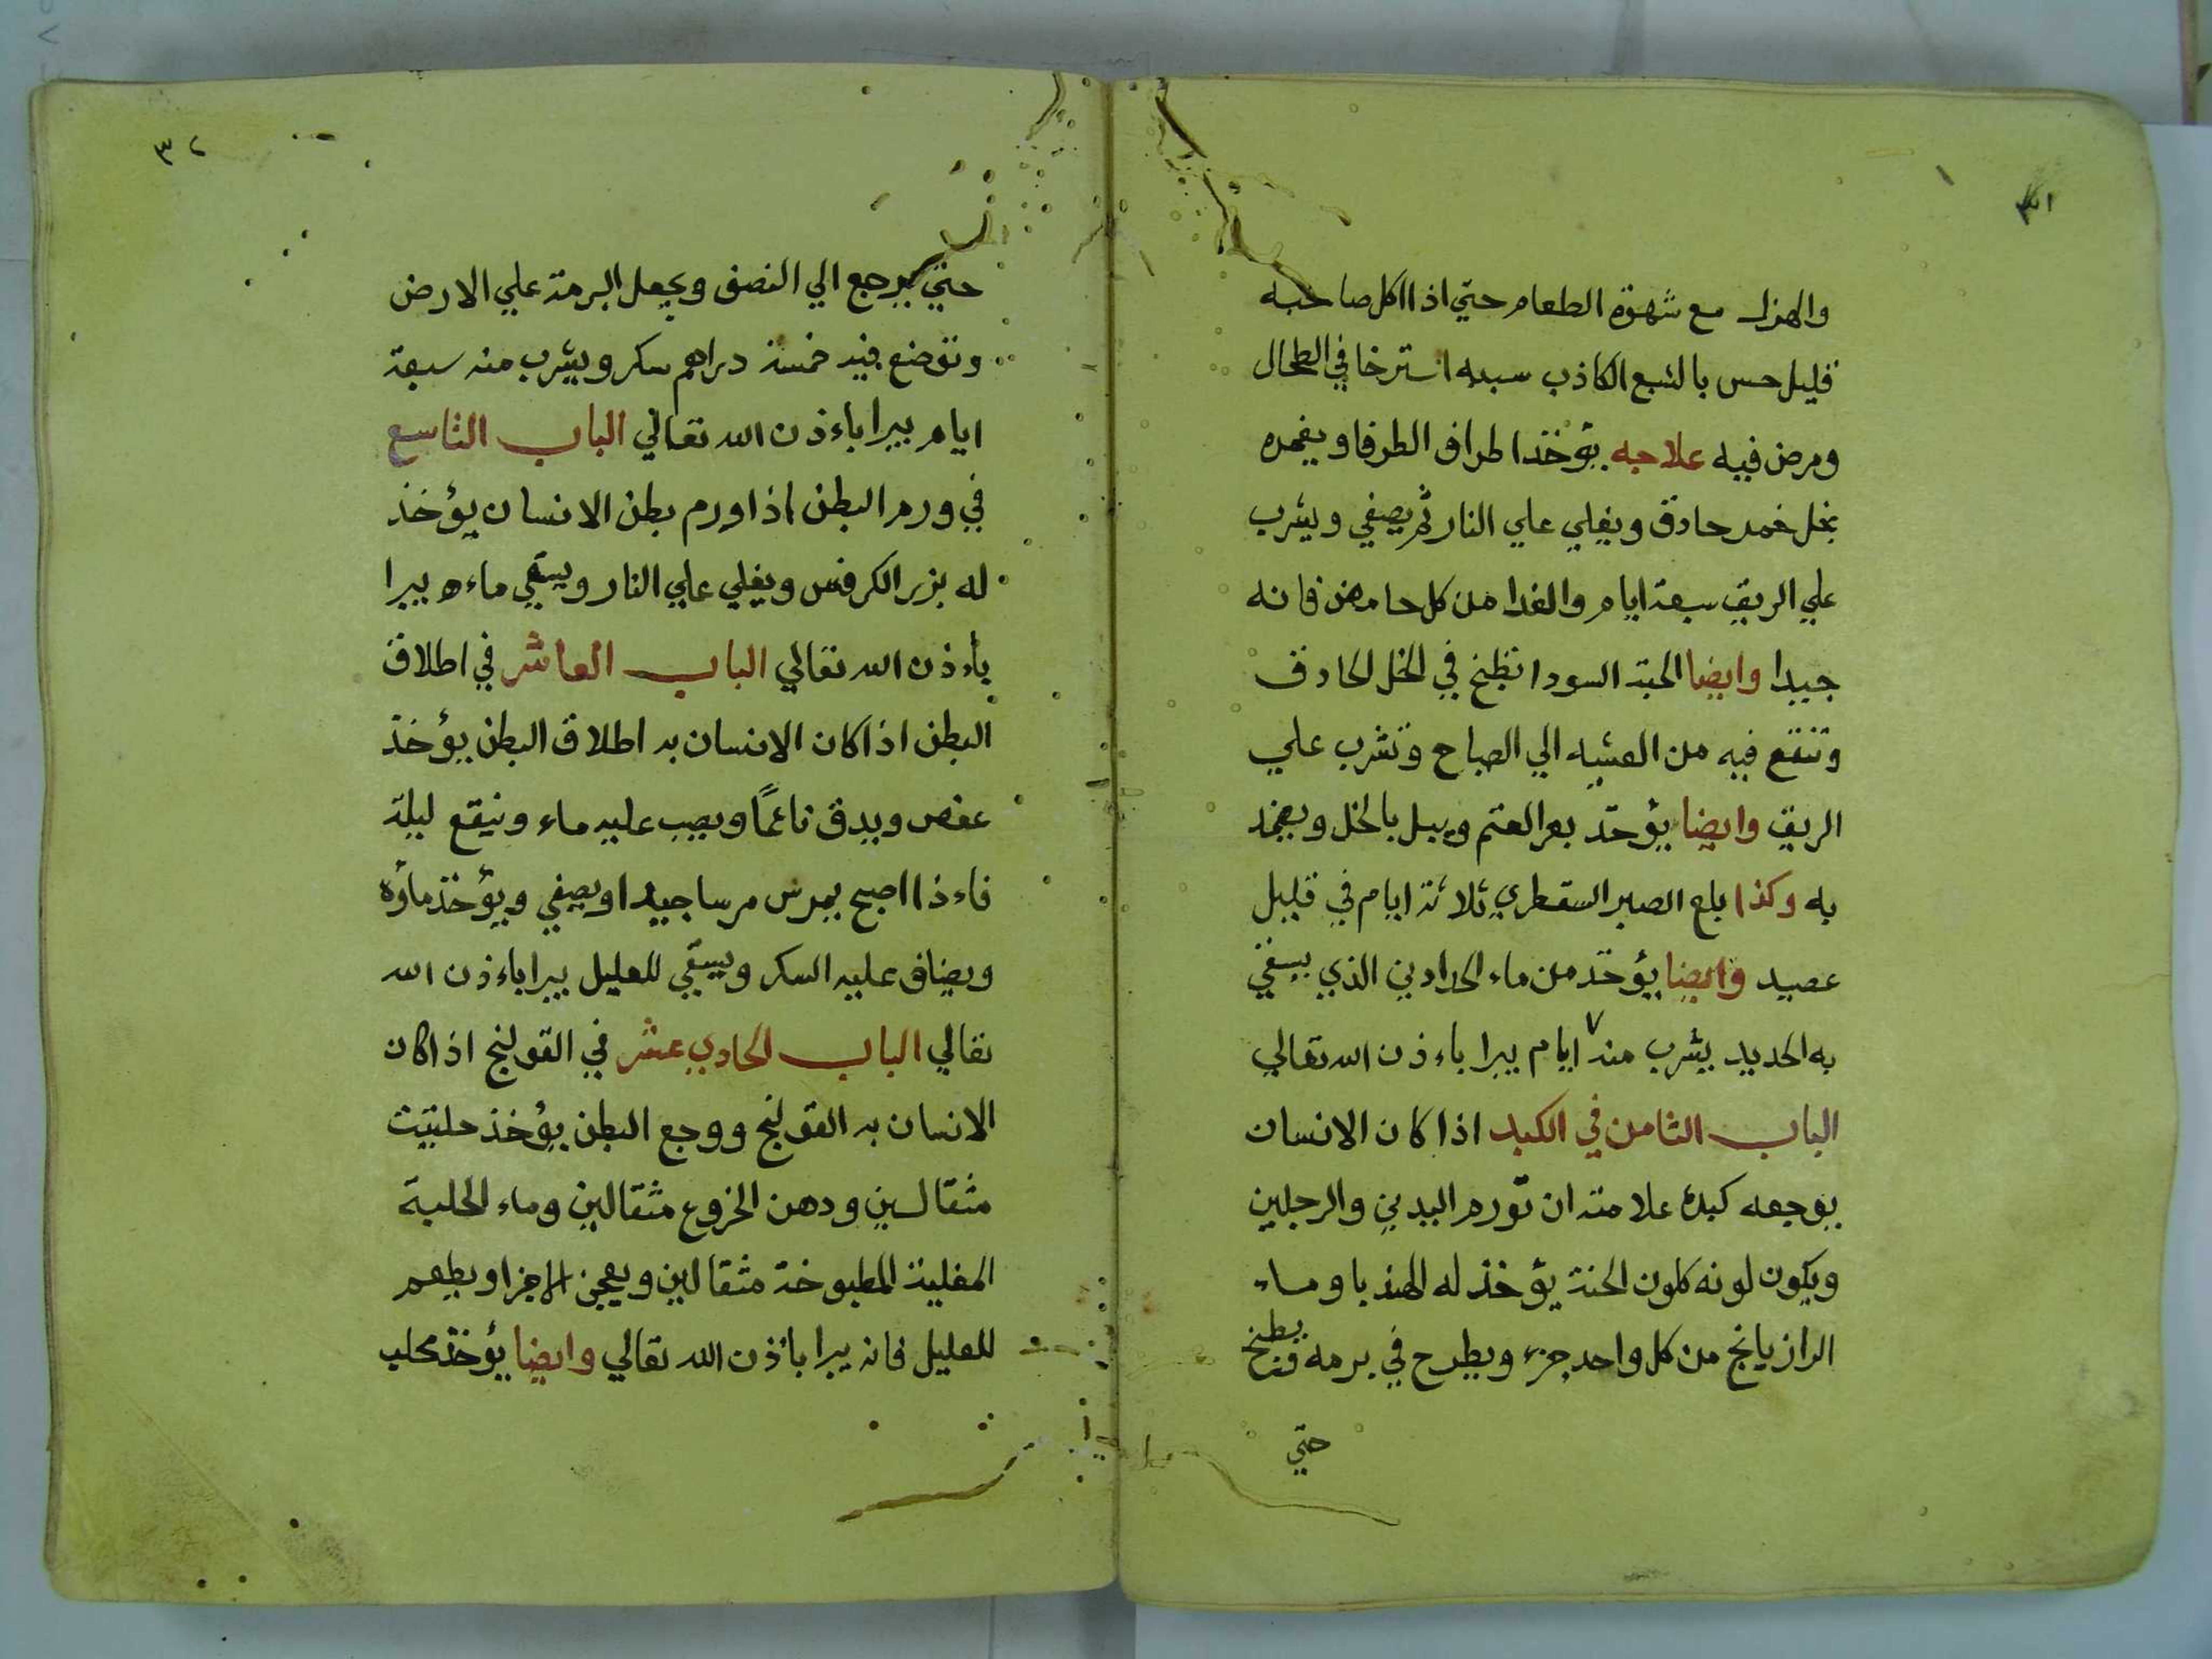 ٣١
والهزال مع شهوة الطعام حتي اذا اكل صاحبه
قليل حس بالشبع الكاذب سببه استرخا في الطحال
ومرض فيه علاجه يؤخذ اطراف الطرفا ويغمره
بخل خمر حاذق ويغلي علي النار ثم يصفي ويشرب
علي الريق سبعة ايام والغدا من كل حامض فانه
جيدا وايضا الحبة السودا تطبخ في الخل الحاذق
وتنقع فيه من العشيه الي الصباح وتشرب علي
الريق وايضا يؤخذ بعر الغنم ويبل بالخل ويضمد
به وكذا بلع الصبر السقطري ثلاثة ايام في قليل
عصيد وايضا يؤخذ من ماء الحدادين الذي يسقي
به الحديد يشرب منه ٧ ايام يبرا باءذن الله تعالي
الباب الثامن في الكبد اذا كان الانسان
يوجعه كبده علامته ان تورم اليدين والرجلين
ويكون لونه كلون الحنة يؤخذ له الهندبا وماء
الرازيانج من كل واحد جزء ويطرح في برمه يطبخ
حتي
٣٢
حتي يرجع الي النصف ويجعل البرمة علي الارض
وتوضع فيه خمسة دراهم سكر ويشرب منه سبعة
ايام يبرا باءذن الله تعالي الباب التاسع
في ورم البطن اذا ورم بطن الانسان يؤخذ
له بزر الكرفس ويغلي علي النار ويسقي ماءه يبرا
باءذن الله تعالي الباب العاشر في اطلاق
البطن اذا كان الانسان به اطلاق البطن يؤخذ
عفص ويدق ناعمًا ويصب عليه ماء وينقع ليلة
فاءذا اصبح يمرس مرسا جيدا ويصفي ويؤخذ ماؤه
ويضاف عليه السكر ويسقي للعليل يبرا باءذن الله
تعالي الباب الحادي عشر في القولنج اذا كان
الانسان به القولنج ووجع البطن يؤخذ حلتيت
مثقالين ودهن الخروع مثقالين وماء الحلبة
المغلية المطبوخة مثقالين ويعجن الاجزا ويطعم
للعليل فانه يبرا باذن الله تعالي وايضا يؤخذ محلب